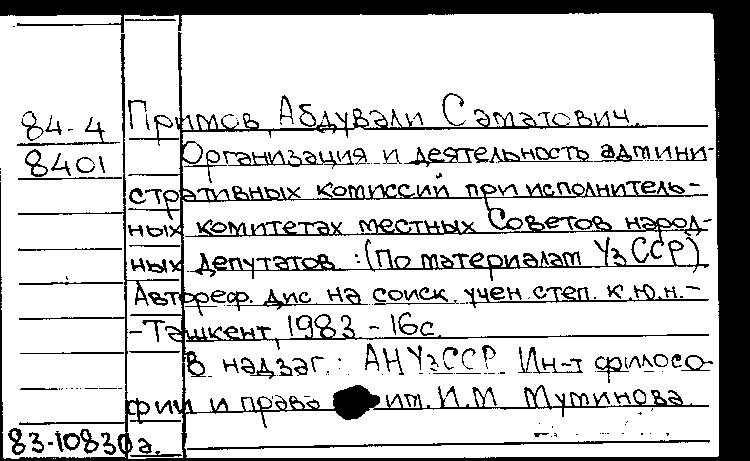 84-4 Примов, Абдували Саматович.
8401 Организация и деятельность админи-
стративных комиссий при исполнитель-
ных комитетах местных Советов народ-
ных депутатов : (По материалам УзССР)
Автореф. дис на соиск. учен. степ. к.ю.н.-
-Ташкент, 1983 - 16с.
В надзаг.: АН УзССР. Ин-т филосо-
фии и права им. И.М. Муминова.
83-10830а.